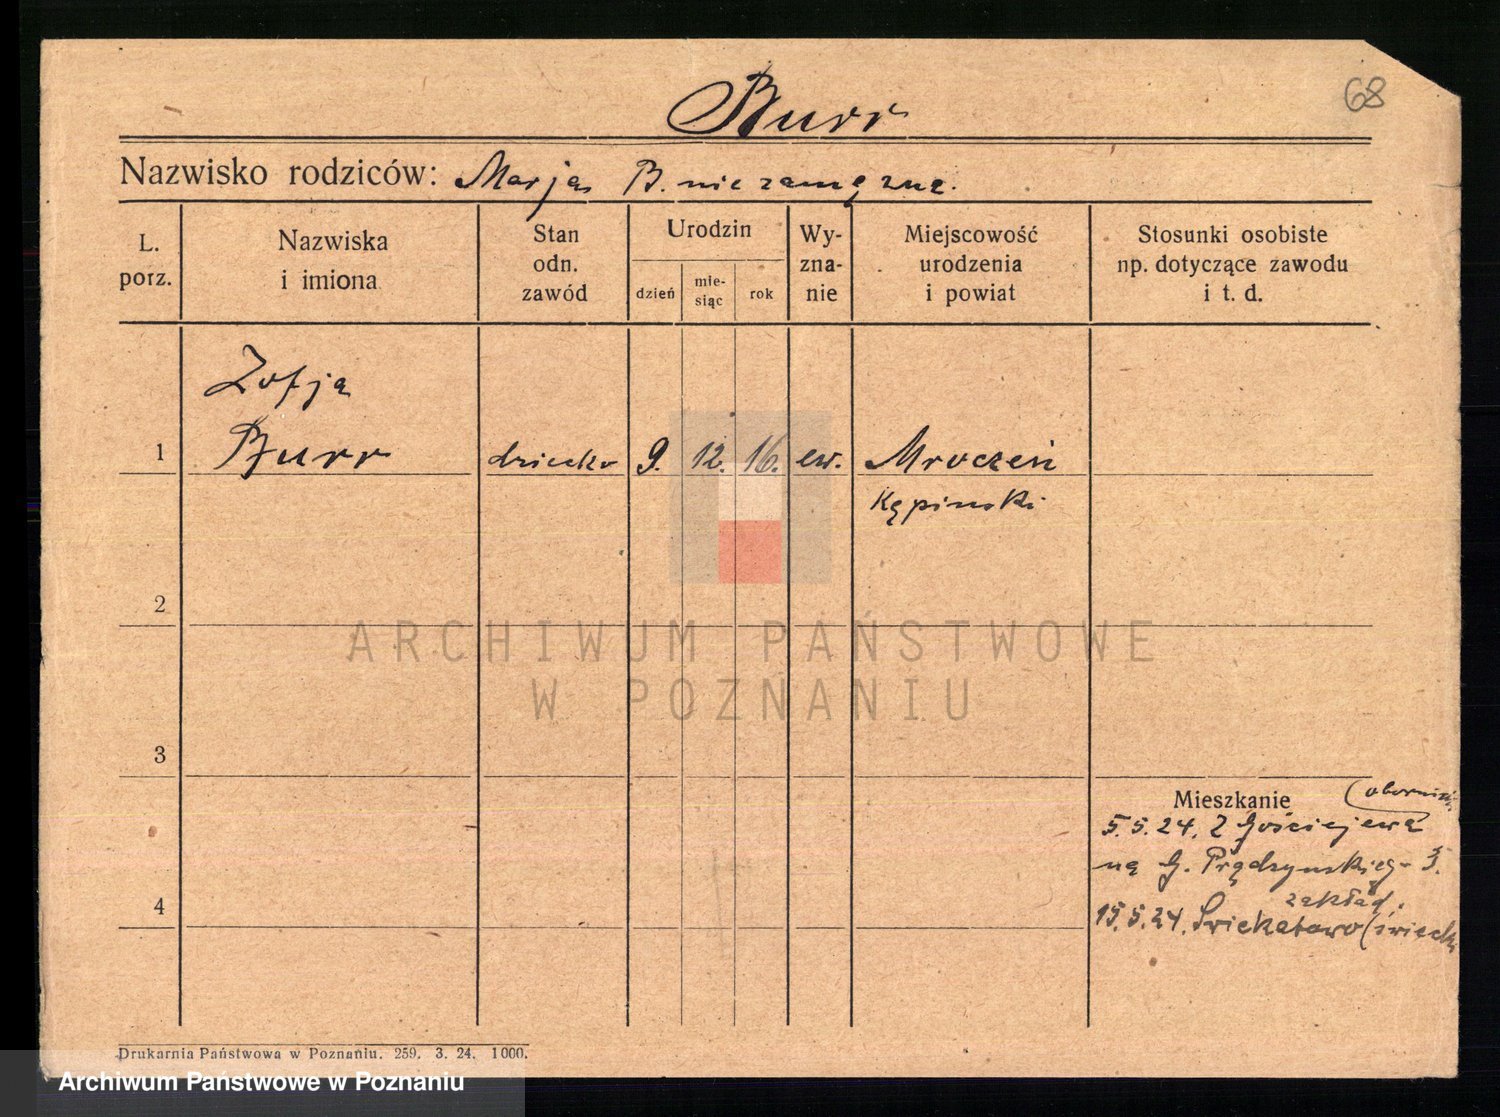 68
Burr
Nazwisko rodziców: Marja B. niezamężna.
L. porz.
Nazwiska i imiona
Stan odn. zawód
Urodzin
dzień
mie-siąc
rok
Wy-zna-nie
Miejscowość urodzenia i powiat
Stosunki osobiste np. dotyczące zawodu i t. d.
Zofja
1 Burr dziecko 9. 12. 16. ew. Mroczeń
Kępiński
2
ARCHIWUM PAŃSTWOWE
W POZNANIU
3
Mieszkanie
5.5.24. z Gościejewa
na G. Prądzyńskieg- 3.
zakład.
4
15.5.24.
Drukarnia Państwowa w Poznaniu. 259. 3. 24. 1000.
Archiwum Państwowe w Poznaniu